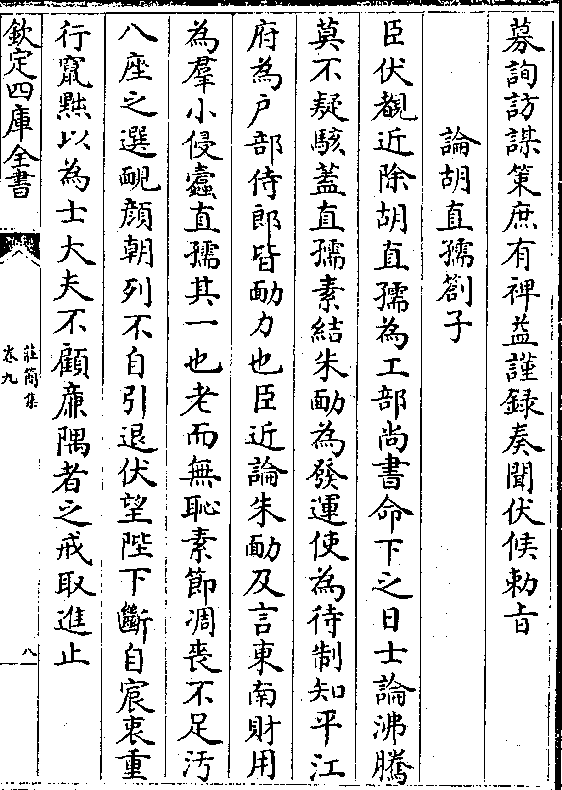 募詢訪謀策庶有裨益謹録奏聞伏候勅㫖
論胡直孺劄子
臣伏覩近除胡直孺為工部尚書命下之日士論沸騰
莫不疑駭葢直孺素結朱勔為發運使為待制知平江
府為戸部侍郎皆勔力也臣近論朱勔及言東南財用
為羣小侵蠧直孺其一也老而無恥素節凋喪不足汚
八座之選靦顔朝列不自引退伏望陛下斷自宸衷重
行竄黜以為士大夫不顧亷隅者之戒取進止
欽定四庫全書
莊簡集
卷九
八